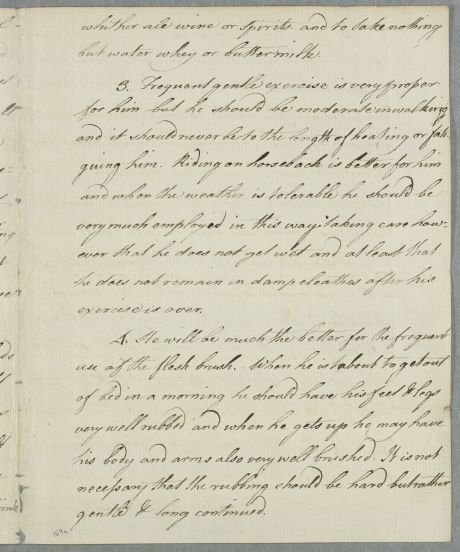 whither ale wine or spirits and to take nothing
but water whey or buttermilk.
3. Frequant gentle exercise is very proper
for him but he should be moderate in walking
and it should never be to the length of heating or fati-
guing him. Riding on horseback is better for him
and when the weather is tolerable he should be
very much employed in this way taking care how-
ever that he does not get wet and at least that
he does not remain in damp cloathes after his
exercise is over.
4. He will be much the better for the frequent
use of the flesh brush. When he is about to get out
of bed in a morning he should have his feet & legs
very well rubbed and when he gets up he may have
his body and arms also very well brushed. It is not
necessary that the rubbing should be hard but rather
gentle & long continued.